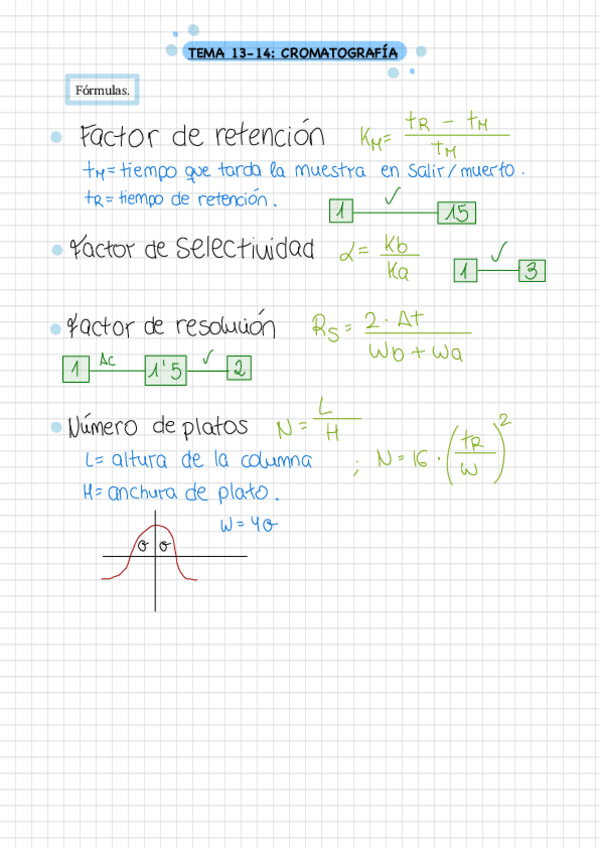 TEMA 13-14: CROMATOGRAFÍA
Fórmulas.
Factor de retención K_M = (t_R - t_M) / t_M
t_M = tiempo que tarda la muestra en salir/muerto.
t_R = tiempo de retención.
1 ✓ 15
Factor de selectividad α = Kb / Ka
1 ✓ 3
Factor de resolución R_S = 2 · Δt / (Wb + Wa)
1 AC 1'5 ✓ 2
Número de platos N = L / H ; N = 16 · (t_R / W)²
L = altura de la columna
H = anchura de plato.
W = 4σ
σ σ